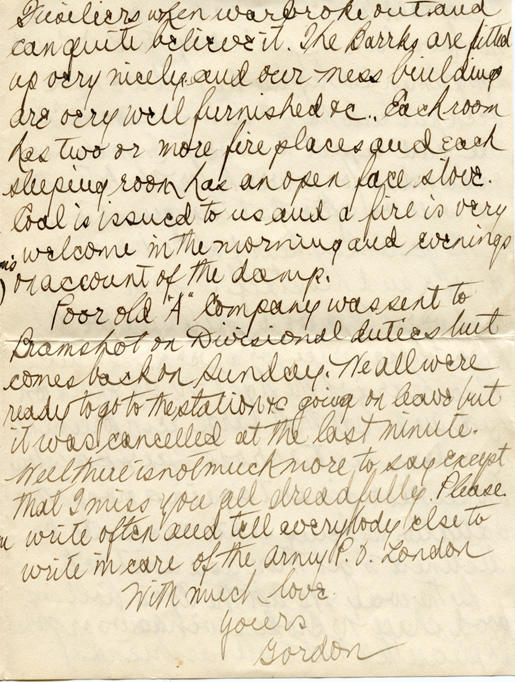 Fusiliers when war broke out and
can quite believe it. The Barrks are fitted
up very nicely and our mess building
are very well furnished &c., Each room
has two or more fire places and each
sleeping room has an open face stove.
Coal is issued to us and a fire is very
welcome in the morning and evenings
on account of the damp.
Poor old "A" Company was sent to
Bramshot on Divisional duties but
comes back on Sunday. We all were
ready to go to the station &c going on leave but
it was cancelled at the last minute.
Well there is not much more to say except
that I miss you all dreadfully. Please
write often and tell everybody else to
write in care of the army P.O. London
With much love.
Yours
Gordon